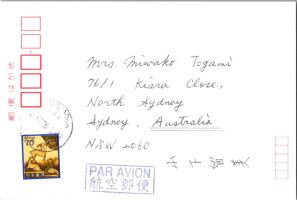 郵便はがき
70
Mrs. Miwako Togami
76/1 Kiara Close,
North Sydney
Sydney, Australia
NSW 2060
PAR AVION
航空郵便